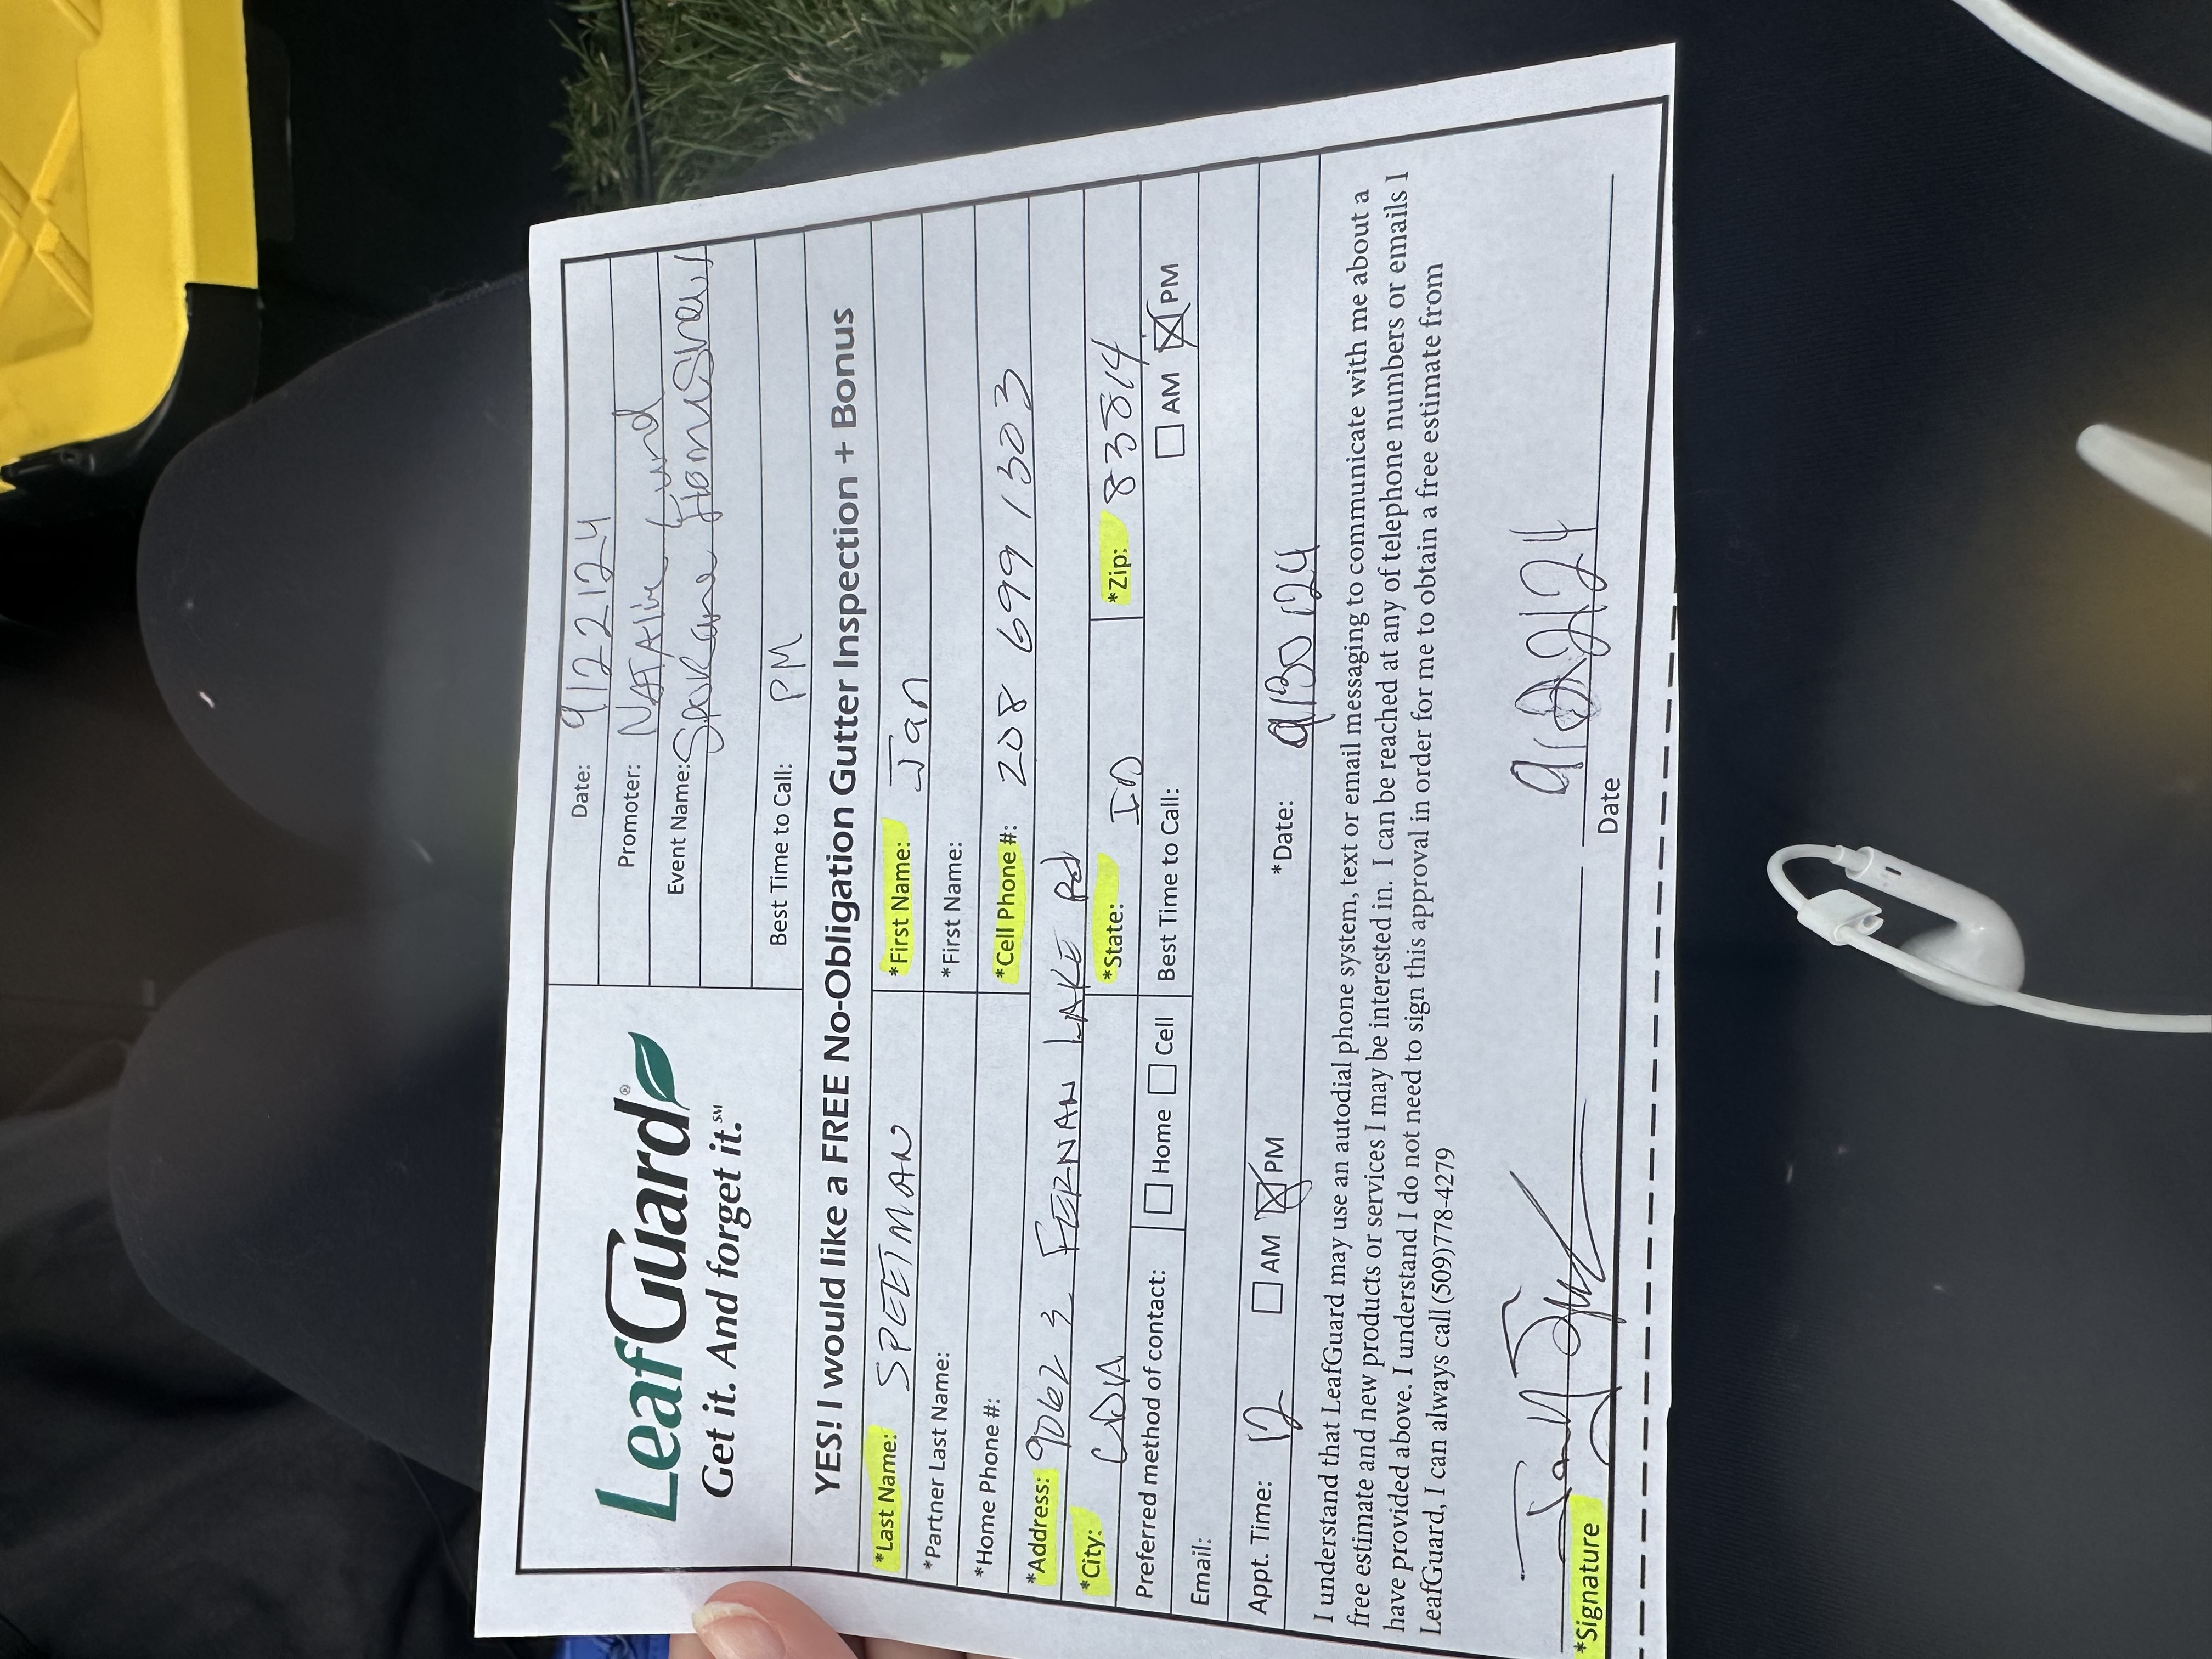 LeafGuard®
Get it. And forget it.℠
Date: 9/22/24
Promoter: NATAlie Lund
Event Name: Spokane HomeShow
Best Time to Call: PM
YES! I would like a FREE No-Obligation Gutter Inspection + Bonus
*Last Name: SPEETMAN *First Name: Jan
*Partner Last Name: *First Name:
*Home Phone #: *Cell Phone #: 208 699 1303
*Address: FERNAN LAKE Rd
*City: CDA *State: ID *Zip: 83814
Preferred method of contact: Home Cell Best Time to Call: AM PM
Email:
Appt. Time: 12 AM PM *Date: 9/30/24
I understand that LeafGuard may use an autodial phone system, text or email messaging to communicate with me about a
free estimate and new products or services I may be interested in. I can be reached at any of telephone numbers or emails I
have provided above. I understand I do not need to sign this approval in order for me to obtain a free estimate from
LeafGuard, I can always call (509)778-4279
9/22/24
*Signature Date